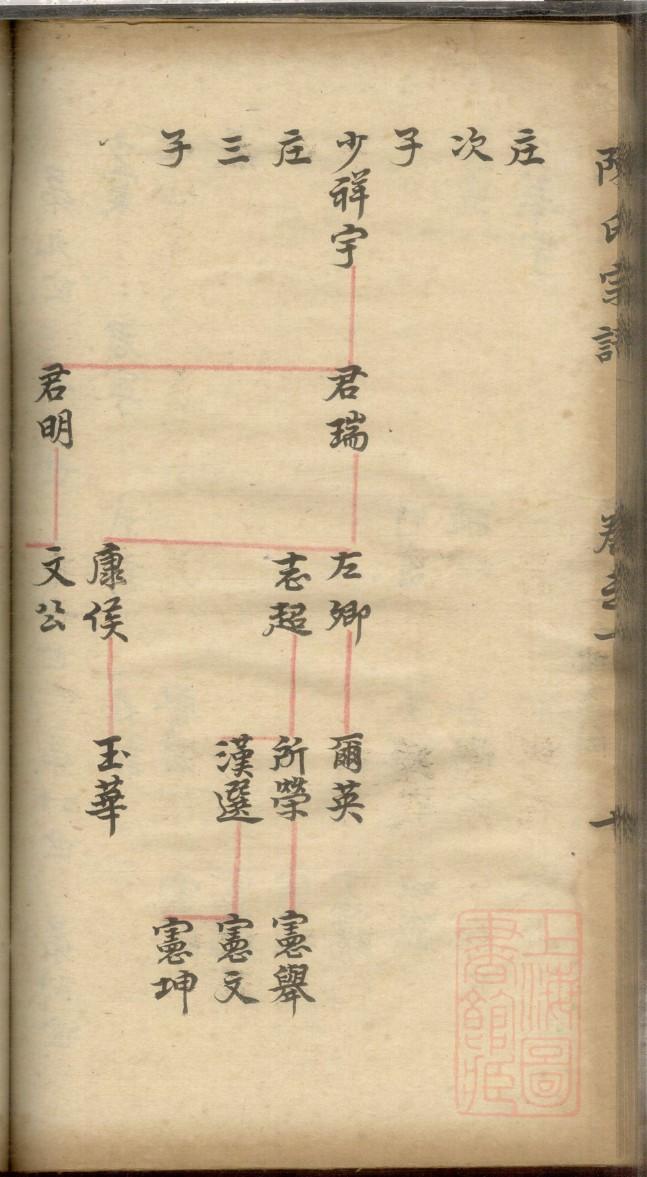 陳氏宗譜 卷之一 十
庄
次
子
少祥宇 君瑞 左卿 爾英
庄 志超 所榮 憲舉
三 漢選 憲文
子 憲坤
康侯 玉華
君明 文公
上海圖
書館藏